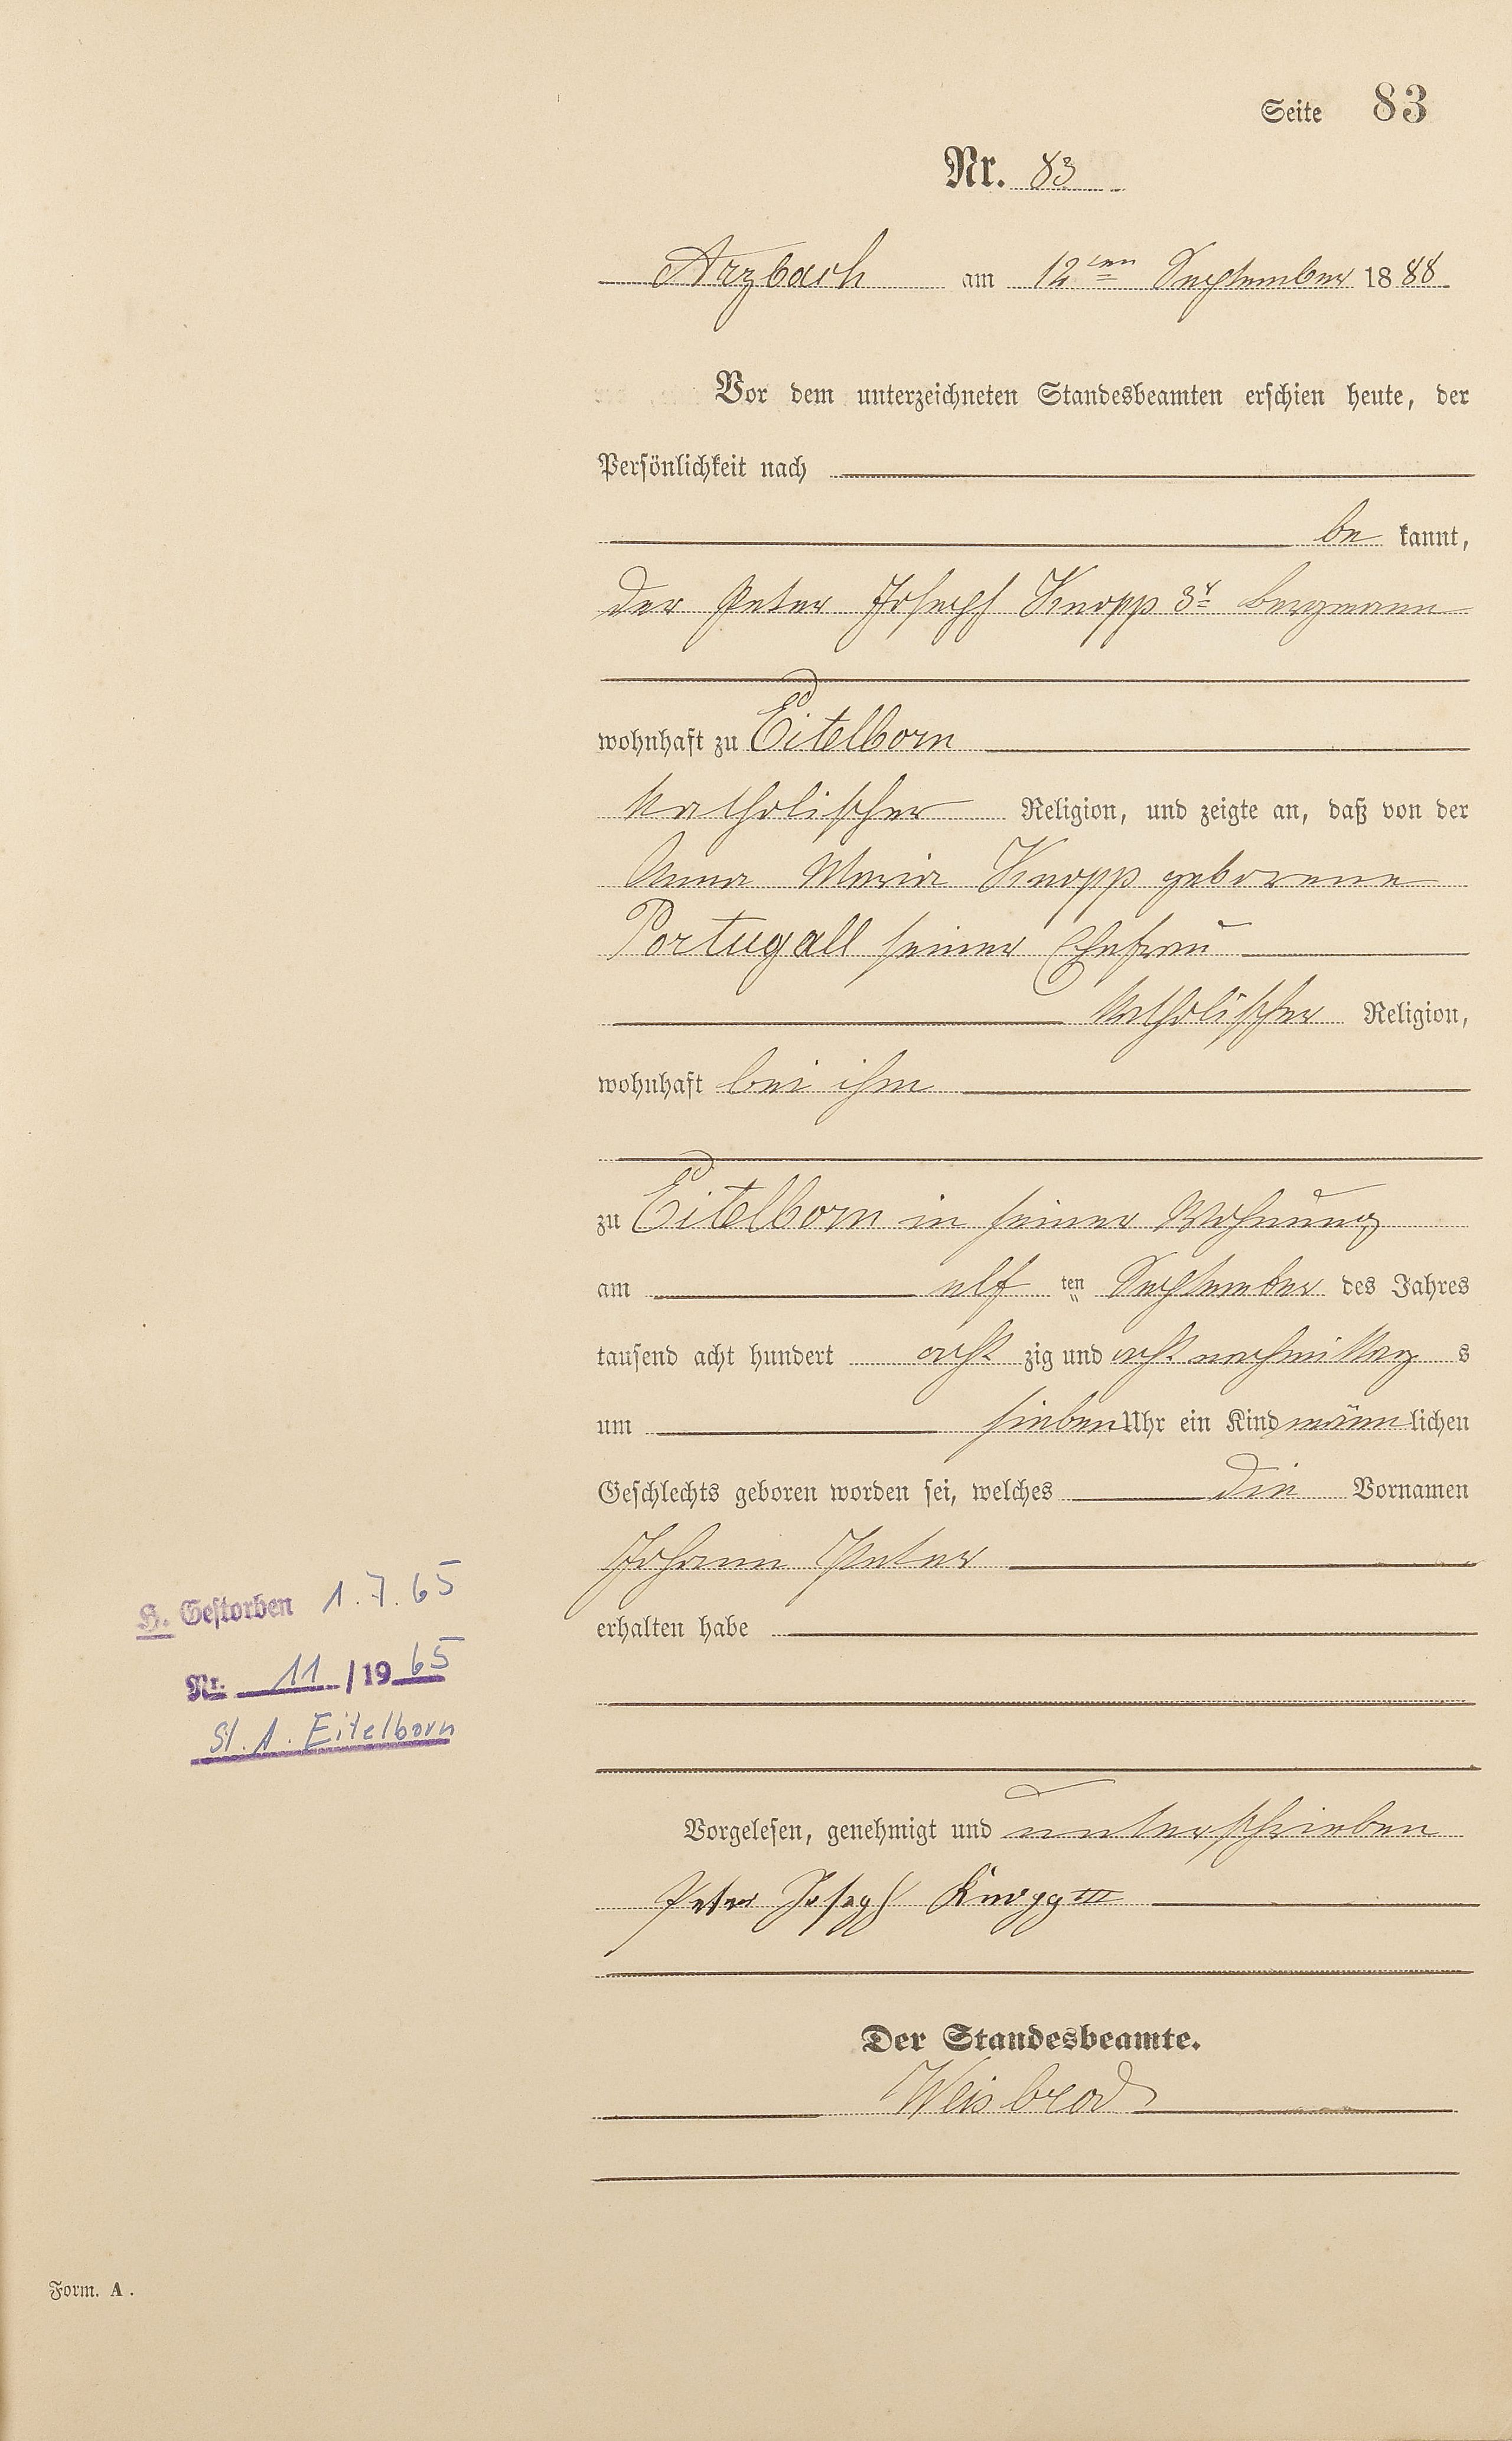 Seite 83
Nr. 83
Arzbach am 12ten September 1888
Vor dem unterzeichneten Standesbeamten erschien heute, der
Persönlichkeit nach
be kannt,
der Peter Joseph Knopp 3r Bergmann
wohnhaft zu Eitelborn
katholischer Religion, und zeigte an, daß von der
Anna Maria Knopp geborene
Portugall seiner Ehefrau
katholischer Religion,
wohnhaft bei ihm
zu Eitelborn in seiner Wohnung
am elf ten September des Jahres
tausend acht hundert acht zig und acht nachmittag s
um sieben Uhr ein Kind männ lichen
Geschlechts geboren worden sei, welches die Vornamen
Johann Peter
erhalten habe
H. Gestorben 1.7.65
Nr. 11 / 1965
St. A. Eitelborn
Vorgelesen, genehmigt und unterschrieben
Peter Joseph Knopp III
Der Standesbeamte.
Weisbrod
Form. A.